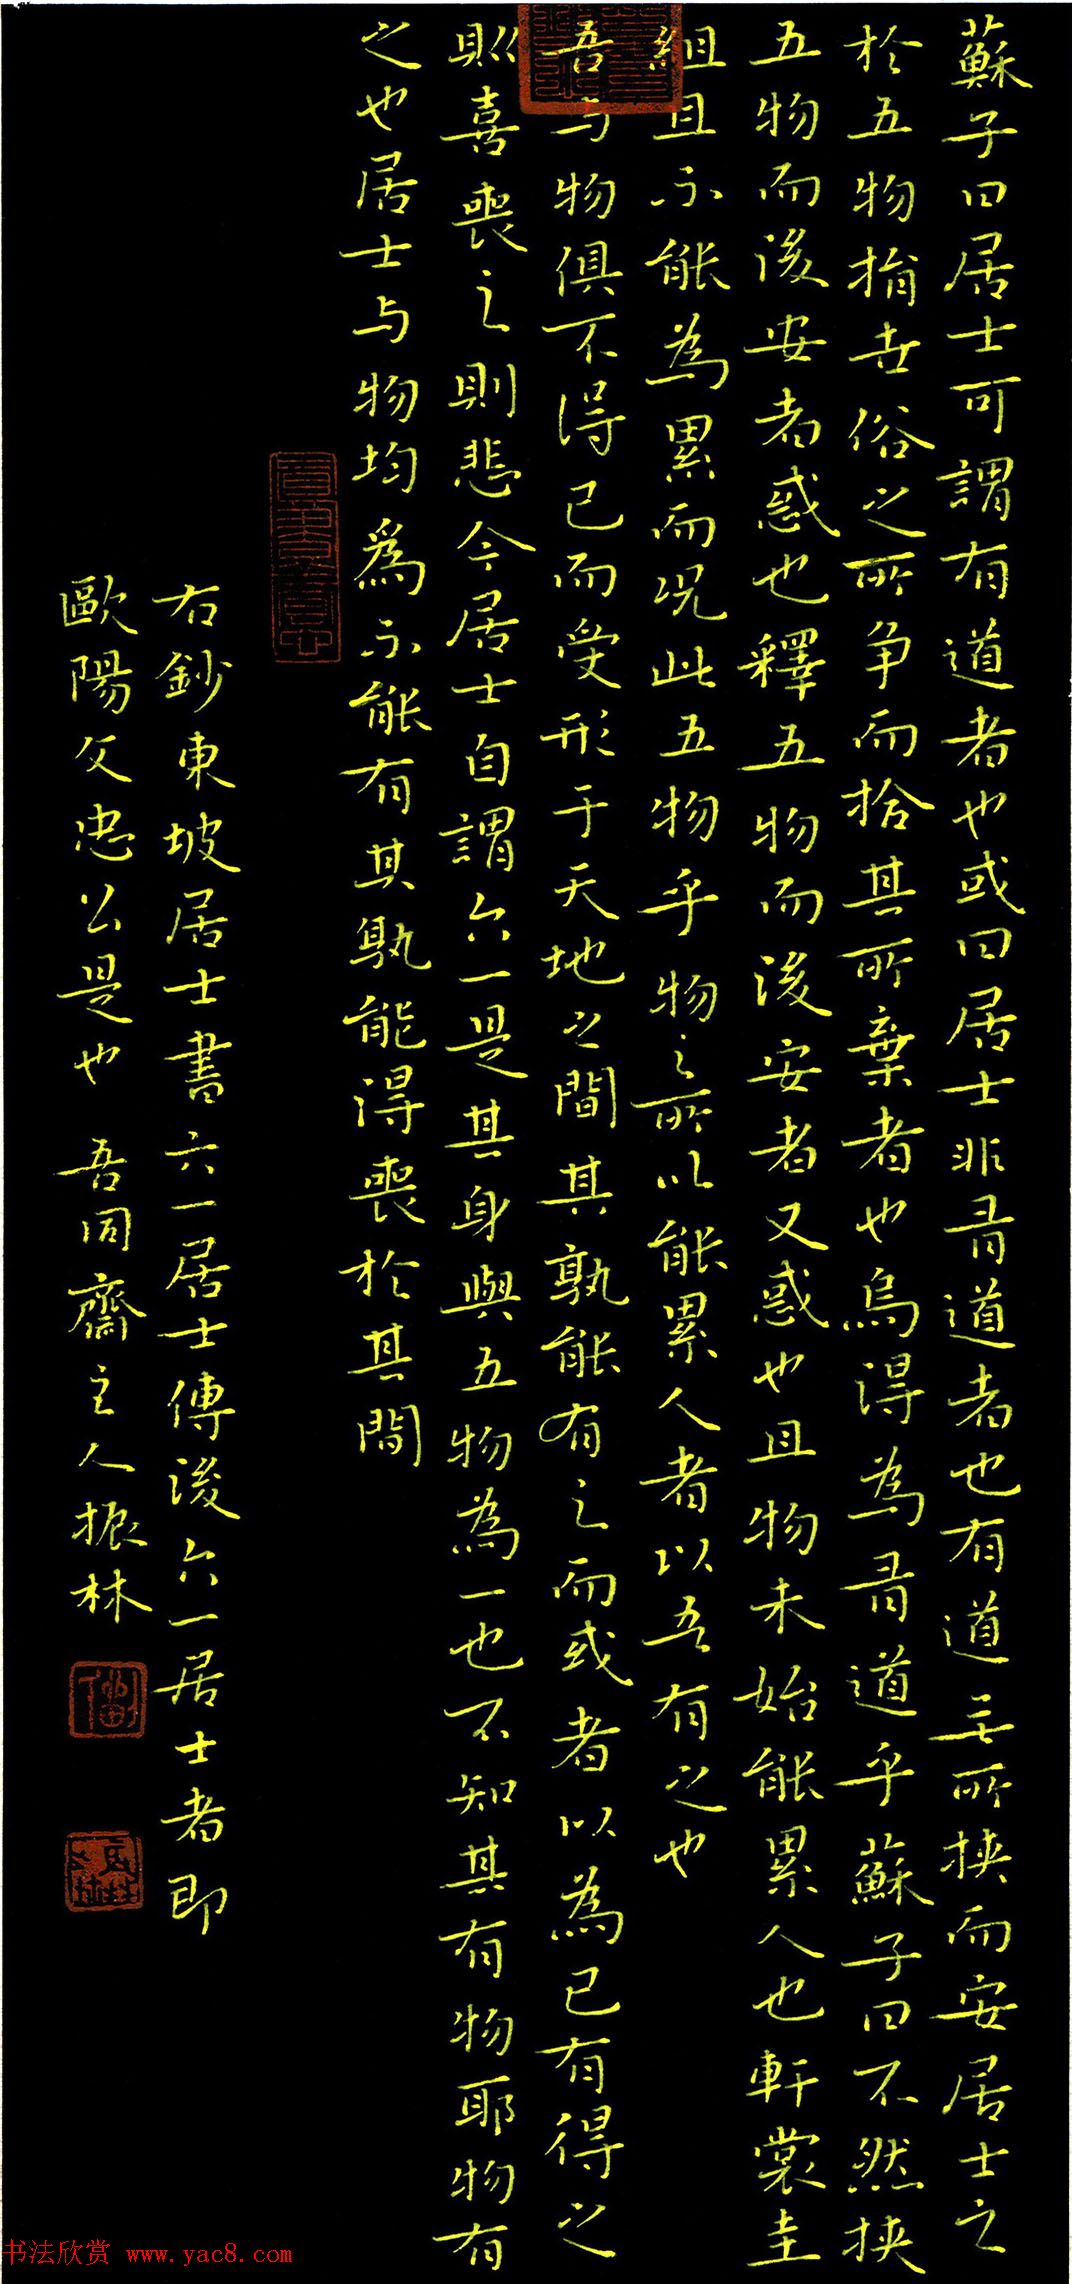 蘇子曰居士可謂有道者也或曰居士非有道者也有道无所挾而安居士之
於五物捐世俗之所爭而拾其所棄者也烏得為有道乎蘇子曰不然挾
五物而後安者惑也釋五物而後安者又惑也且物未始能累人也軒裳圭
組且不能為累而況此五物乎物之所以能累人者以吾有之也
吾与物俱不得已而受形于天地之間其孰能有之而或者以為己有得之
則喜喪之則悲今居士自謂六一是其身與五物為一也不知其有物耶物有
之也居士与物均為不能有其孰能得喪於其間
右鈔東坡居士書六一居士傳後六一居士者即
歐陽文忠公是也 吾同齋主人振林
书法欣赏 www.yac8.com